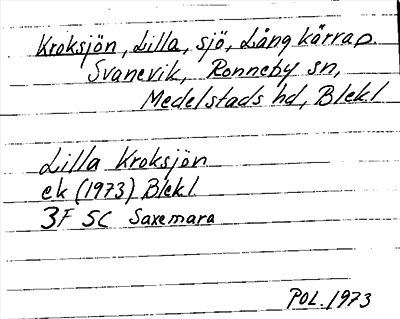 Kroksjön, Lilla, sjö, Långkärrap.
Svanevik, Ronneby sn,
Medelstads hd, Blekl
Lilla Kroksjön
ek (1973) Blekl
3F 5C Saxemara
POL. 1973